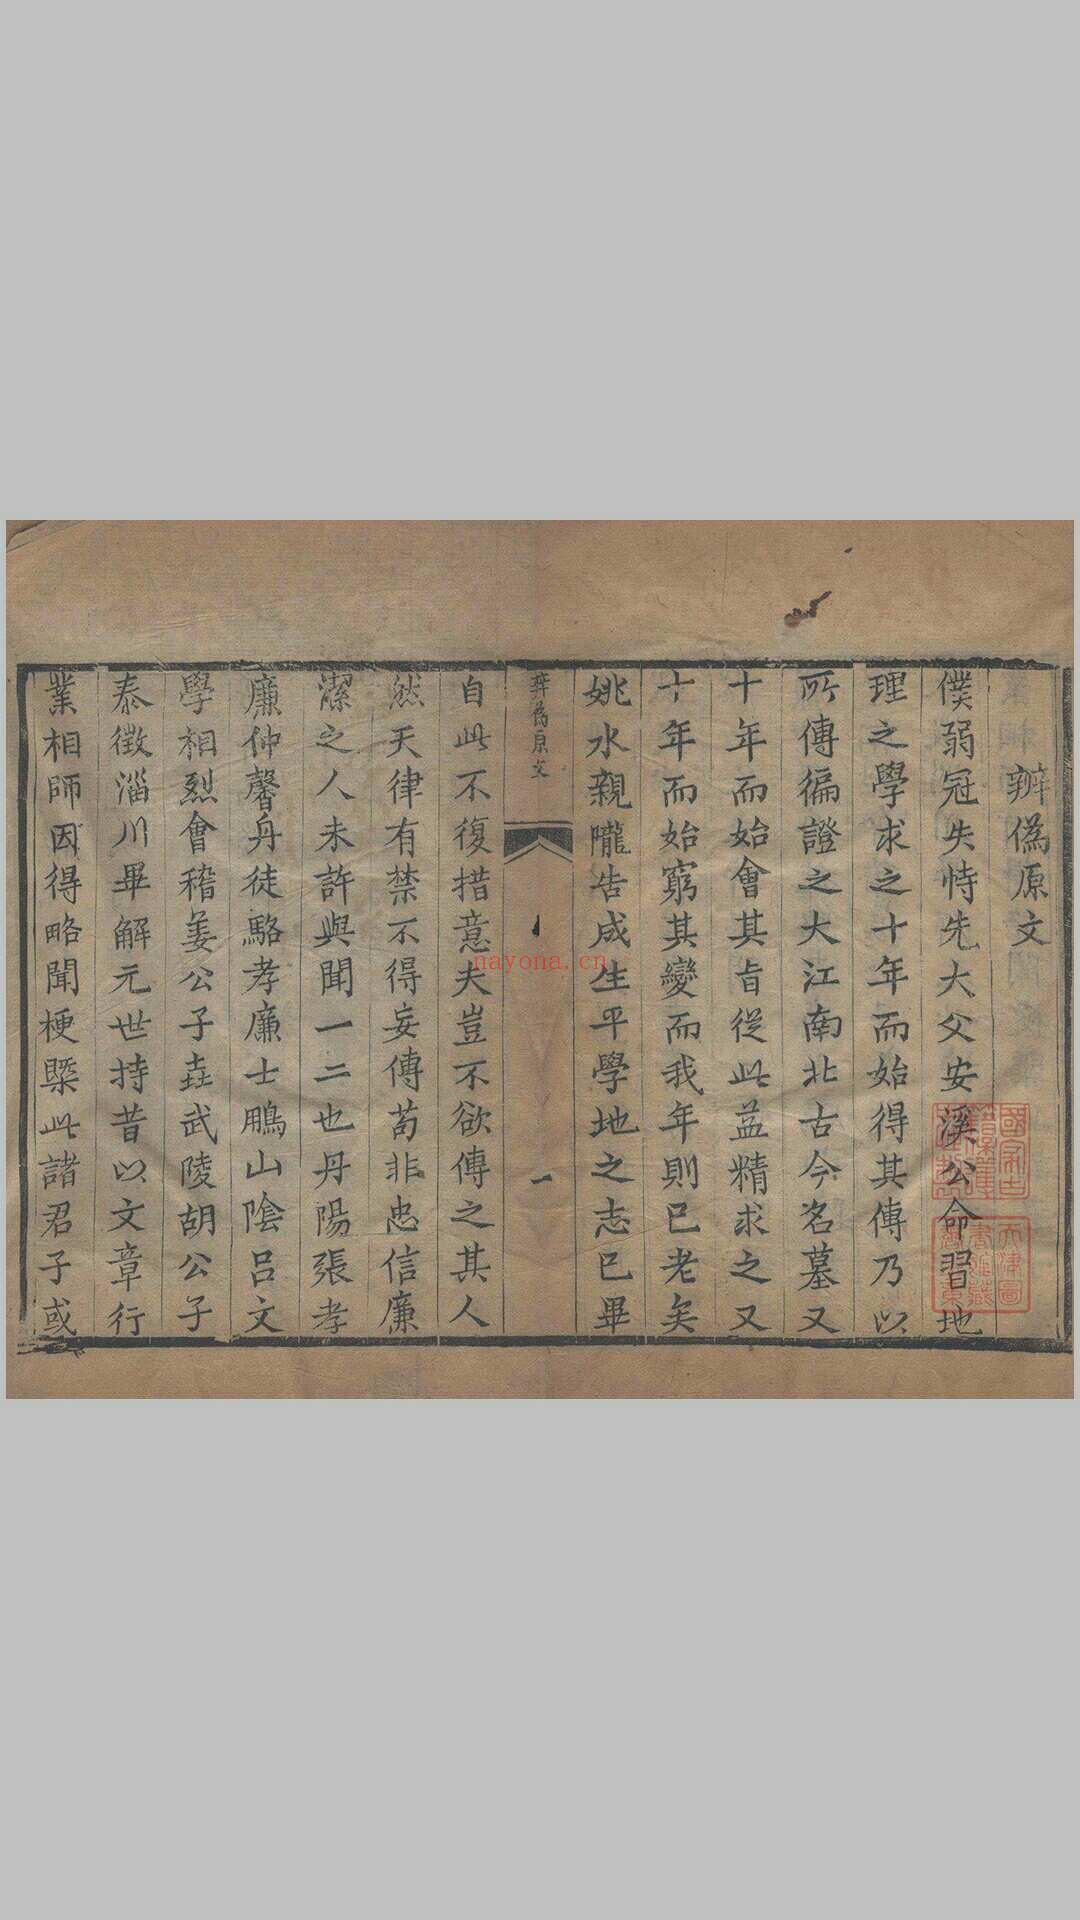 辨偽原文
僕弱冠失恃先大父安溪公命習地
理之學求之十年而始得其傳乃以
所傳徧證之大江南北古今名墓又
十年而始會其旨從此益精求之又
十年而始窮其變而我年則已老矣
姚水親隴告成生平學地之志已畢
辨偽原文
一
自此不復措意夫豈不欲傳之其人
然天律有禁不得妄傳苟非忠信廉
潔之人未許與聞一二也丹陽張孝
廉仲馨丹徒駱孝廉士鵬山陰呂文
學相烈會稽姜公子垚武陵胡公子
泰徵淄川畢解元世持昔以文章行
業相師因得略聞梗槩此諸君子或
nayona.cn